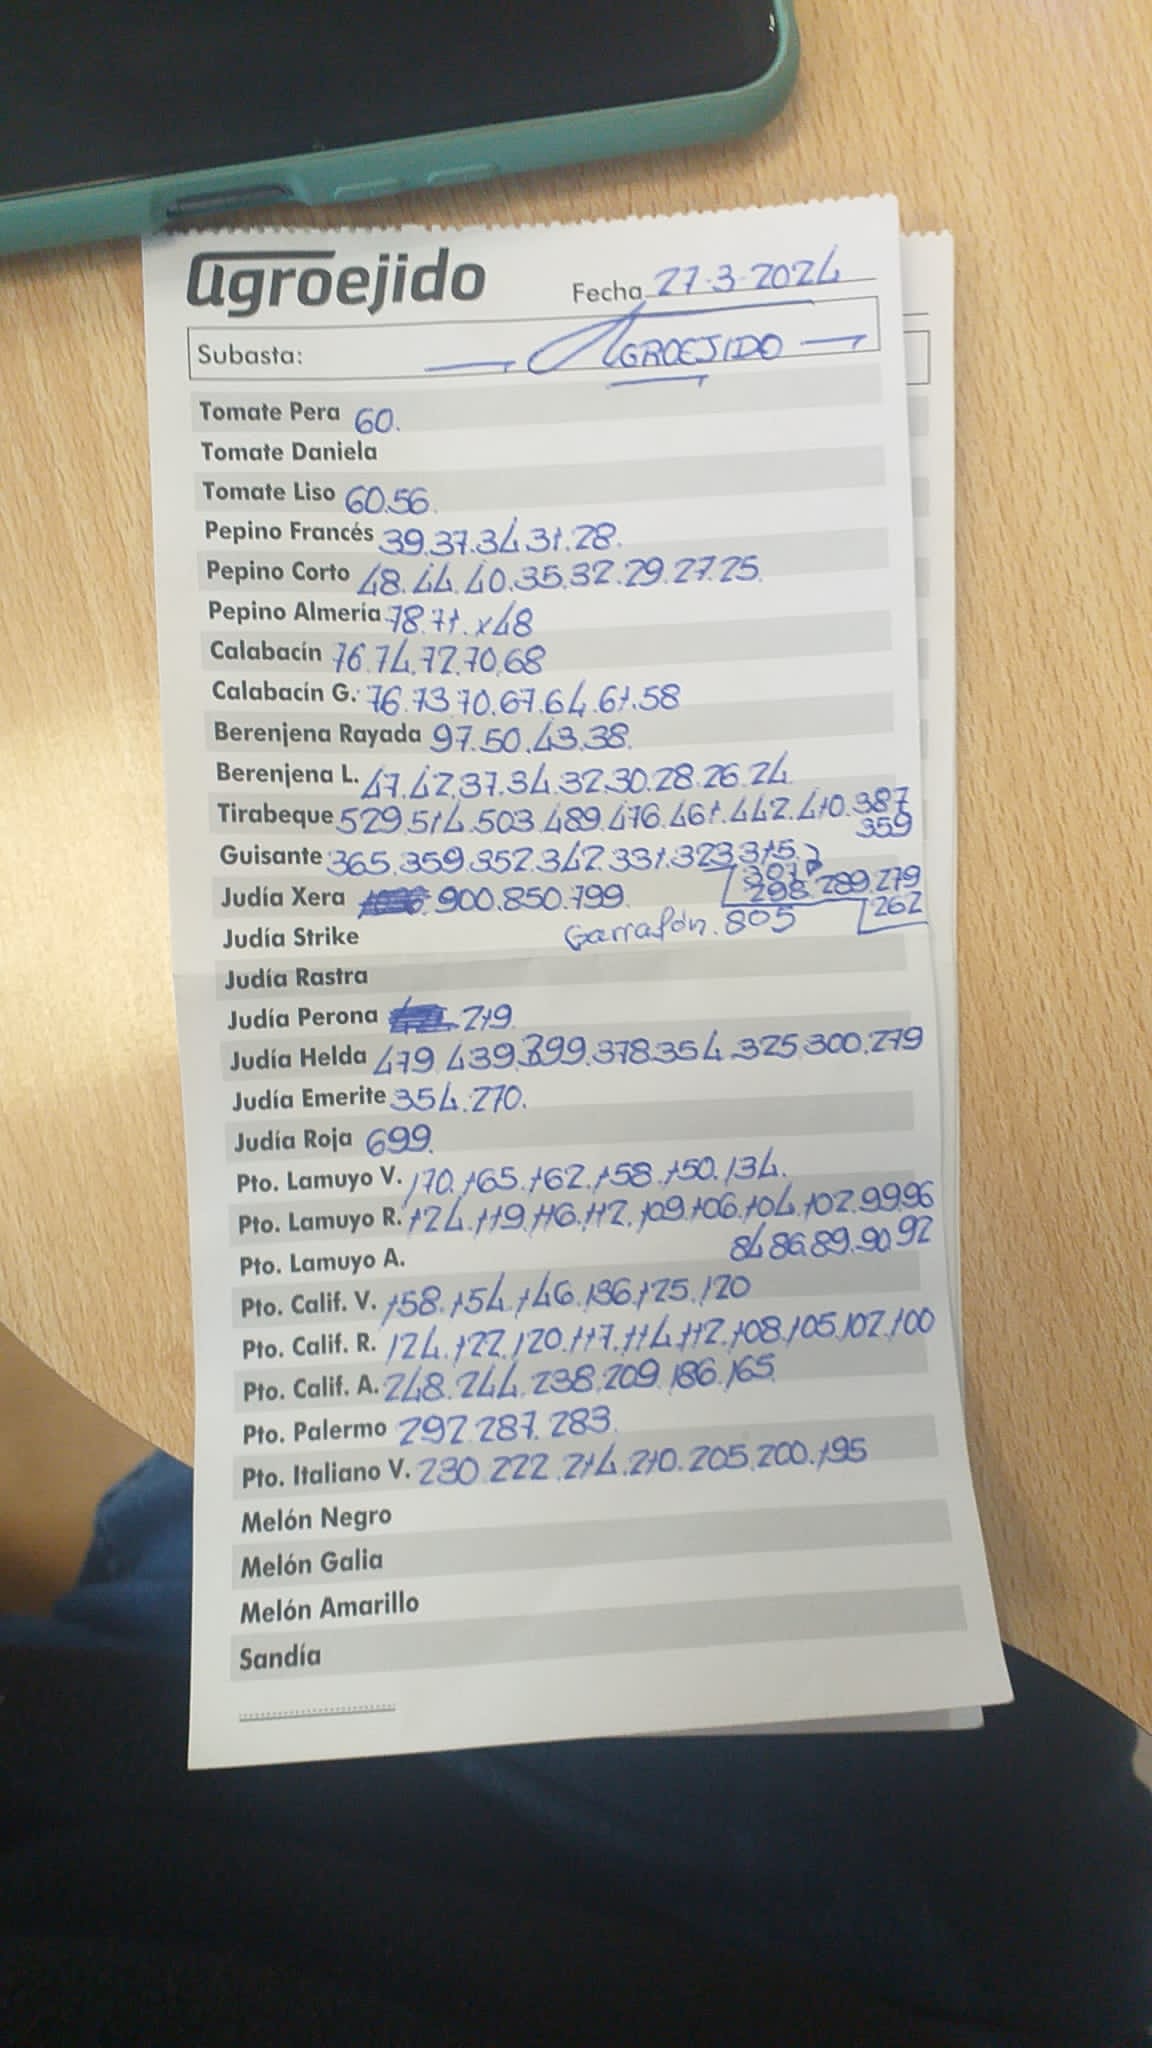 agroejido
Fecha 27-3-2024
Subasta: AGROEJIDO
Tomate Pera 60.
Tomate Daniela
Tomate Liso 60.56.
Pepino Francés 39.37.34.31.28.
Pepino Corto 48.44.40.35.32.29.27.25.
Pepino Almería 78.71.x48
Calabacín 76.74.72.70.68
Calabacín G. 76.73.70.67.64.61.58
Berenjena Rayada 97.50.43.38.
Berenjena L. 47.42.37.34.32.30.28.26.24
Tirabeque 529.514.503.489.476.461.442.410.387
359
Guisante 365.359.352.342.331.323.315.
307
298.289.279
262
Judía Xera 900.850.799.
Garrafón.805
Judía Strike
Judía Rastra
Judía Perona 219.
Judía Helda 479.439.399.378.354.325.300.279
Judía Emerite 354.270.
Judía Roja 699.
Pto. Lamuyo V. 170.165.162.158.150.134.
Pto. Lamuyo R. 124.119.116.112.109.106.104.102.99.96
84.86.89.90.92
Pto. Lamuyo A.
Pto. Calif. V. 158.154.146.136.125.120
Pto. Calif. R. 124.122.120.117.114.112.108.105.102.100
Pto. Calif. A. 248.244.238.209.186.165.
Pto. Palermo 292.287.283.
Pto. Italiano V. 230.222.214.210.205.200.195
Melón Negro
Melón Galia
Melón Amarillo
Sandía